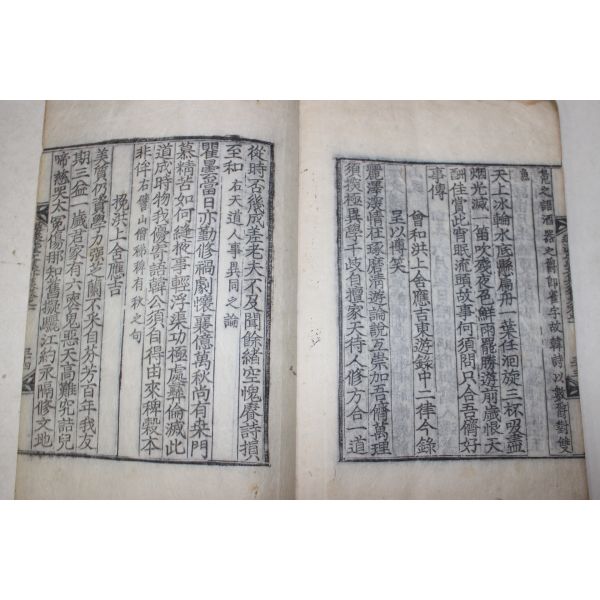 魚
天上氷輪水底懸扁舟一葉任洄旋三杯吸盡
烟光滅一笛吹殘夜色鮮雨罷勝遊前歲恨天
酬佳賞此宵眠流頭故事何須問只合吾儕好
事傳
曾和洪上舍應吉東遊錄中二律今錄
呈以博笑
麗澤漢情在琢磨淸遊論說互崇加吾儕萬理
須揆極異學千歧自擅家天待人修方合一道
從時否幾成差老夫不及聞餘緖空愧賡詩損
至和 右天道人事異同之論
瞿曇當日亦勤修禍劇懷襄億萬秋尚有來門
慕精舌如何縫掖事輕浮渠功極處彛倫滅此
道成時物我優寄語韓公須自得由來稗穀本
非侔 右優山僧稊稗有秋之句
挽洪上舍應吉
美質仍資學力强芝蘭不采自芬芳百年我友
期三益一歲君家有六喪鬼惡天高難究詰兒
啼慈哭太冤傷那知舊擬驪江約永隔修文地